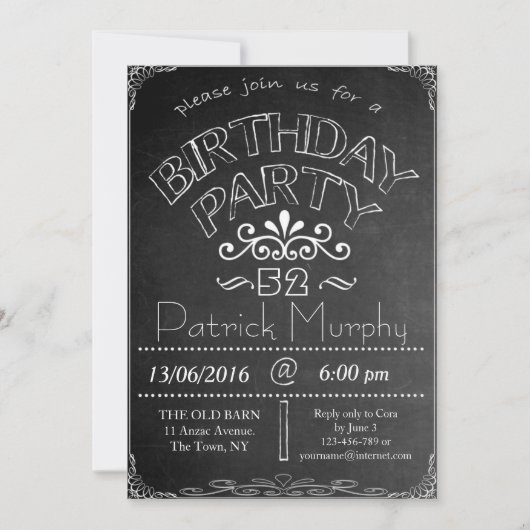 please join us for a
BIRTHDAY
PARTY
52
Patrick Murphy
13/06/2016 @ 6:00 pm
THE OLD BARN
11 Anzac Avenue.
The Town, NY
Reply only to Cora
by June 3
123-456-789 or
yourname@internet.com